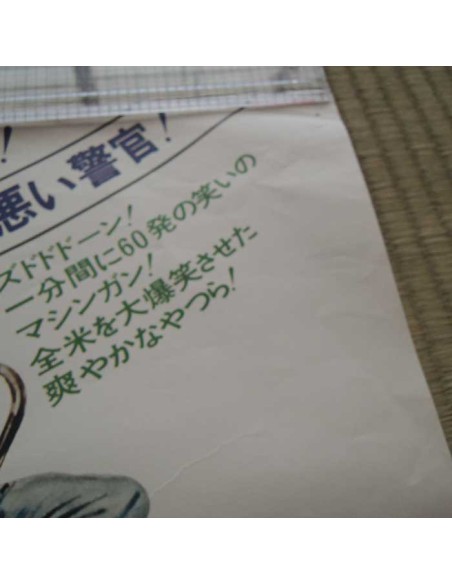 ！
悪い警官！
ズドドドーン！
一分間に60発の笑いの
マシンガン！
全米を大爆笑させた
爽やかなやつら！